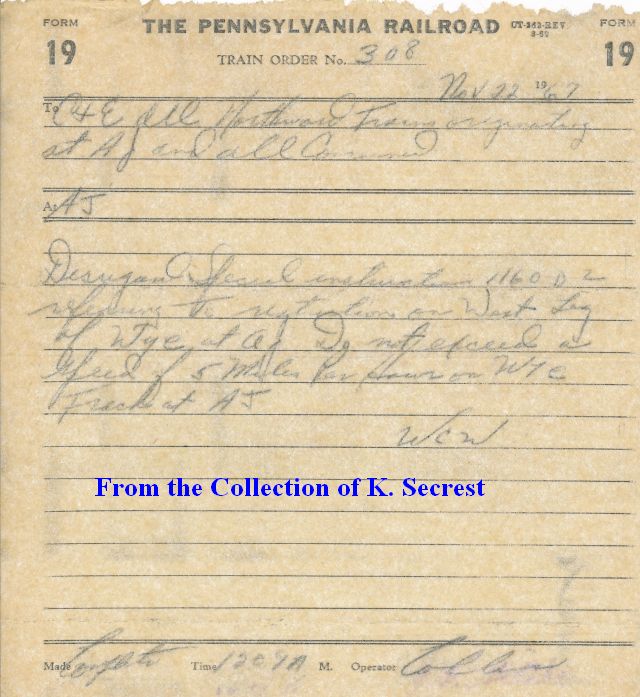 FORM THE PENNSYLVANIA RAILROAD CT-362-REV FORM
19 TRAIN ORDER No. 308 19
Nov 22 1967
To C&E All Northward Trains originating
at AJ and all Concerned
At AJ
Disregard Special instruction 1160 D 2
refering to restrictions on West Leg
of Wye at AJ Do not exceed a
Speed of 5 Miles Per hour on Wye
Track at AJ
WCW
From the Collection of K. Secrest
Made Complete Time 1207A M. Operator Collins